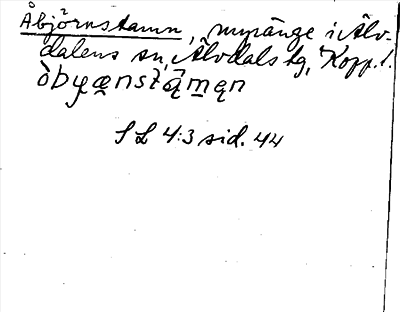 Åbjörnstamn, myränge i Älv-
dalens sn, Älvdals tg, Kopp. l.
òbyænstāmęn
S L 4:3 sid. 44